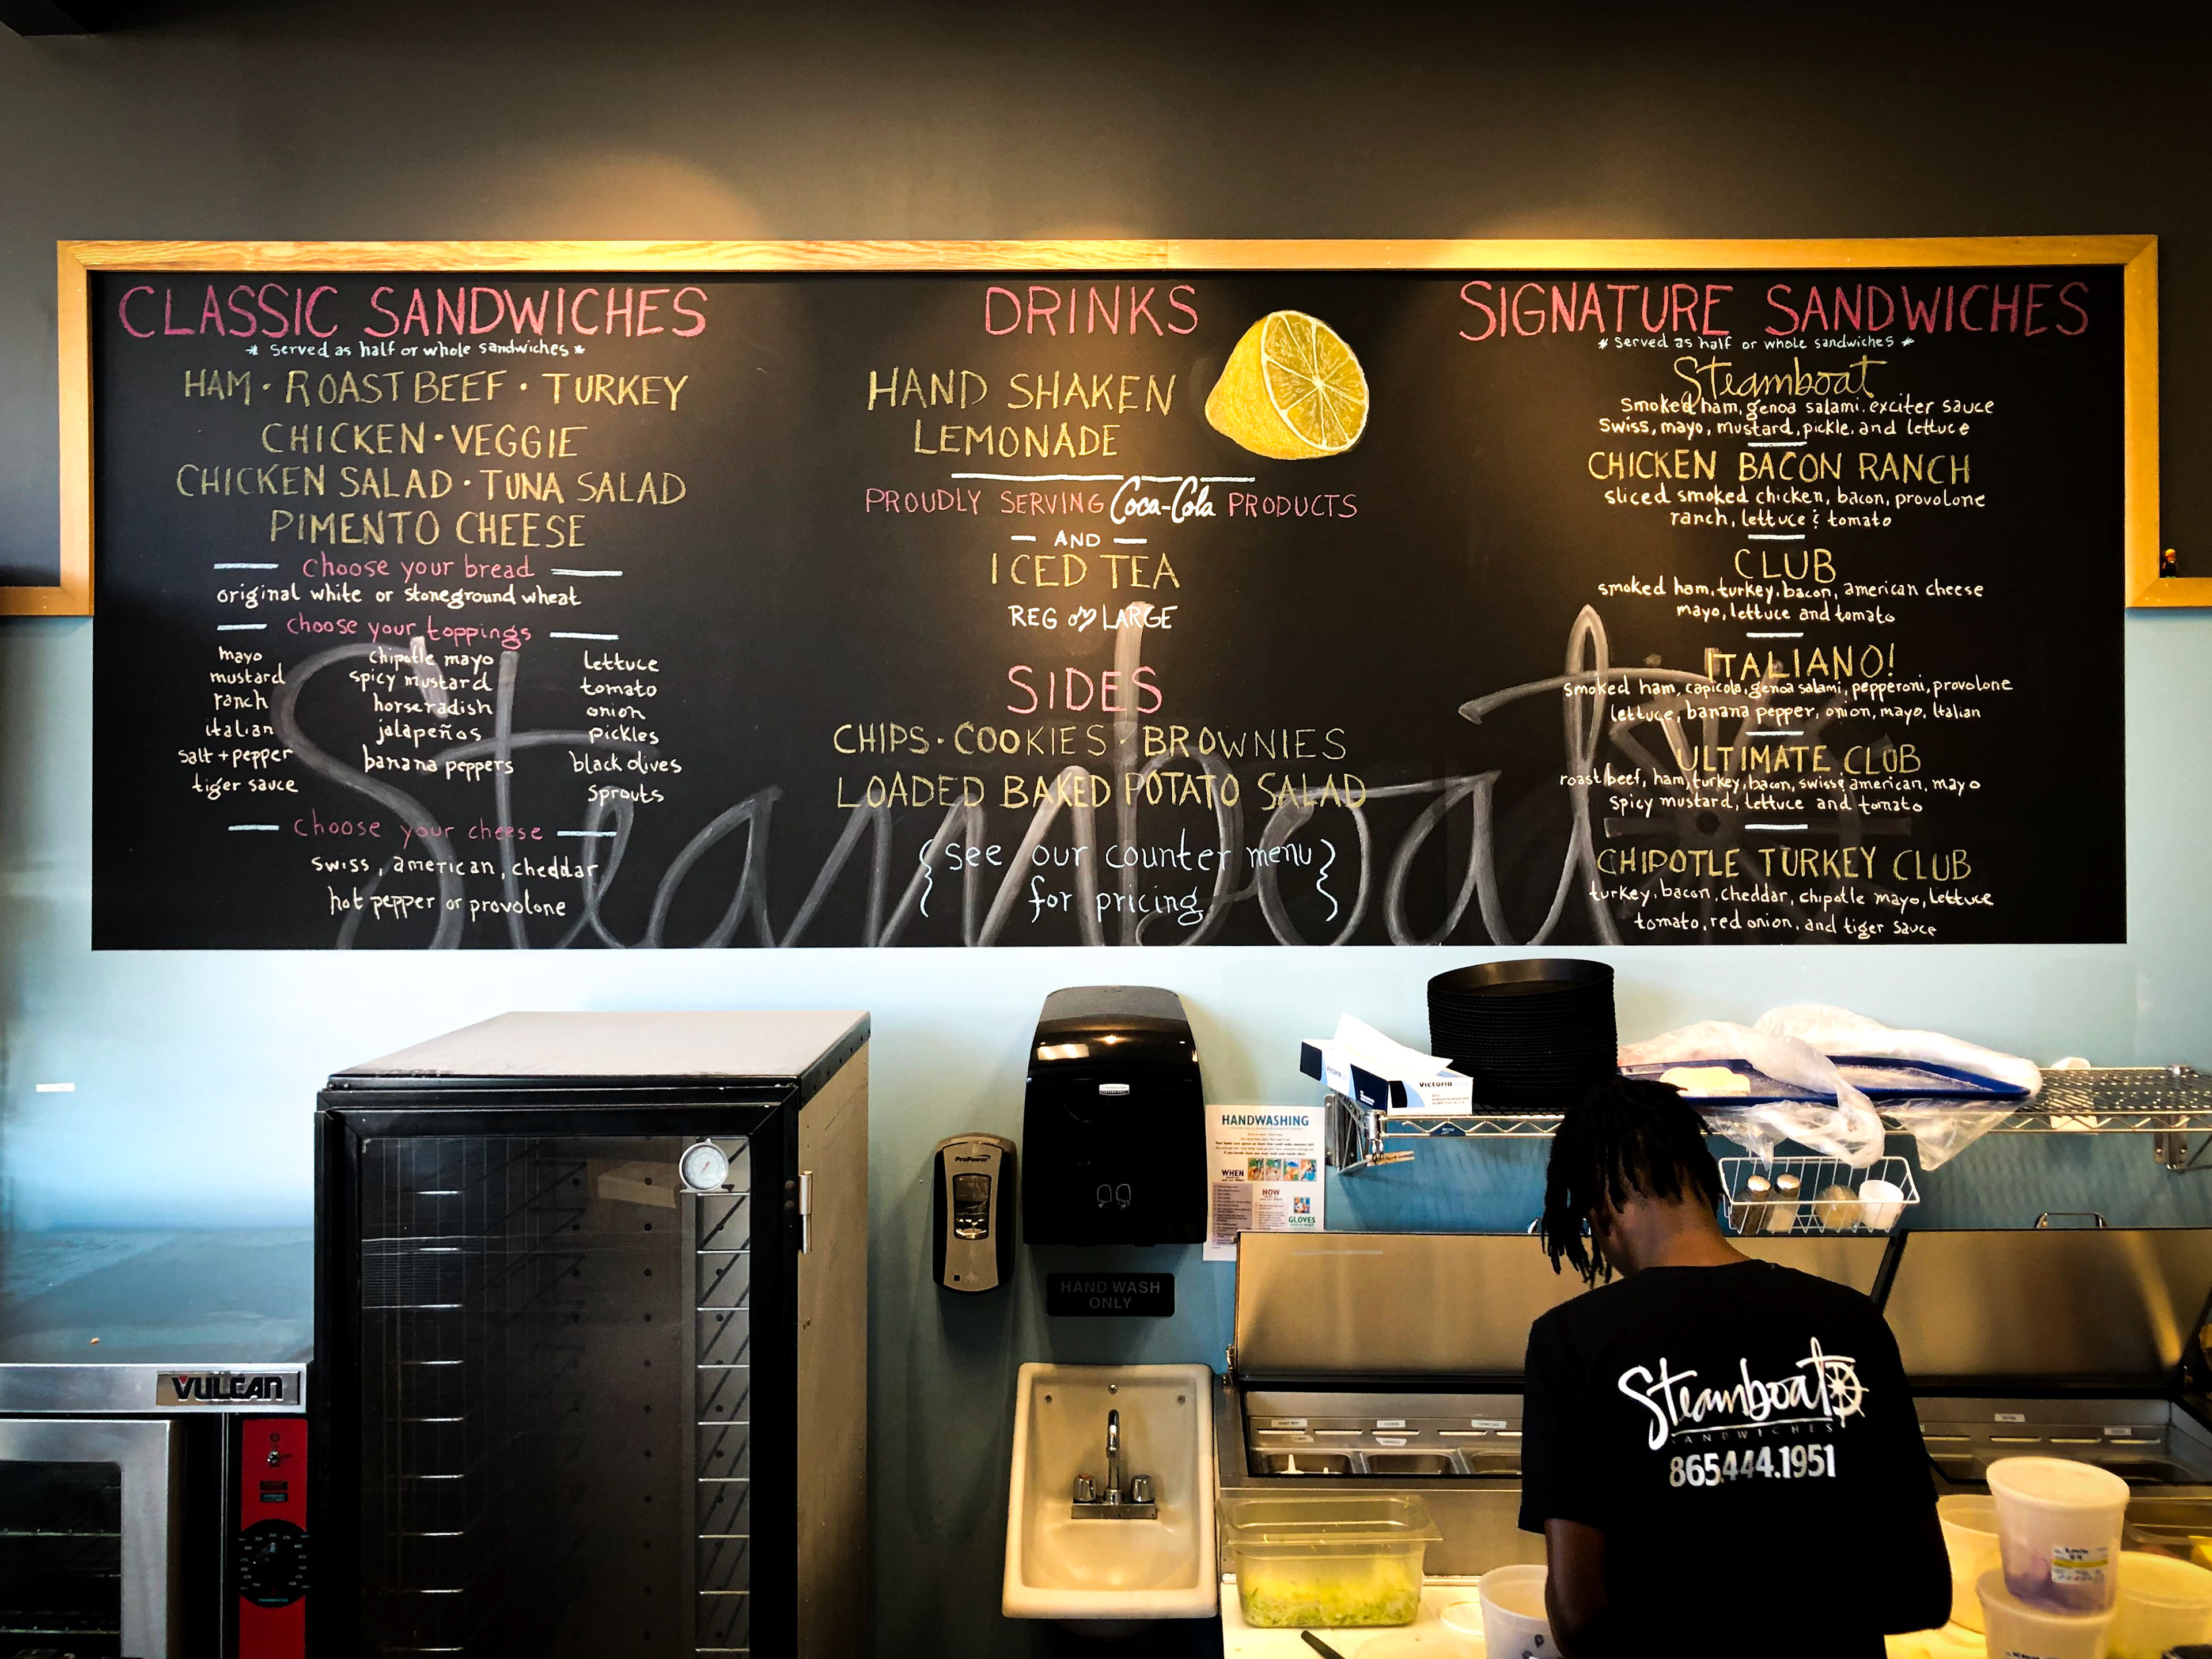 CLASSIC SANDWICHES
* served as half or whole sandwiches *
HAM · ROAST BEEF · TURKEY
CHICKEN · VEGGIE
CHICKEN SALAD · TUNA SALAD
PIMENTO CHEESE
choose your bread
original white or stoneground wheat
choose your toppings
mayo
mustard
ranch
italian
salt + pepper
tiger sauce
chipotle mayo
spicy mustard
horseradish
jalapeños
banana peppers
lettuce
tomato
onion
pickles
black olives
sprouts
choose your cheese
swiss, american, cheddar
hot pepper or provolone
DRINKS
HAND SHAKEN
LEMONADE
PROUDLY SERVING Coca-Cola PRODUCTS
AND
ICED TEA
REG or LARGE
SIDES
CHIPS · COOKIES · BROWNIES
LOADED BAKED POTATO SALAD
{see our counter menu
for pricing}
SIGNATURE SANDWICHES
* served as half or whole sandwiches *
Steamboat
smoked ham, genoa salami, exciter sauce
swiss, mayo, mustard, pickle, and lettuce
CHICKEN BACON RANCH
sliced smoked chicken, bacon, provolone
ranch, lettuce & tomato
CLUB
smoked ham, turkey, bacon, american cheese
mayo, lettuce and tomato
ITALIANO!
smoked ham, capicola, genoa salami, pepperoni, provolone
lettuce, banana pepper, onion, mayo, Italian
ULTIMATE CLUB
roast beef, ham, turkey, bacon, swiss & american, mayo
spicy mustard, lettuce and tomato
CHIPOTLE TURKEY CLUB
turkey, bacon, cheddar, chipotle mayo, lettuce
tomato, red onion, and tiger sauce
Steamboat
Victoria
ProPower
HANDWASHING
WHEN
HOW
GLOVES
HAND WASH
ONLY
VULCAN
Steamboat
SANDWICHES
865.444.1951